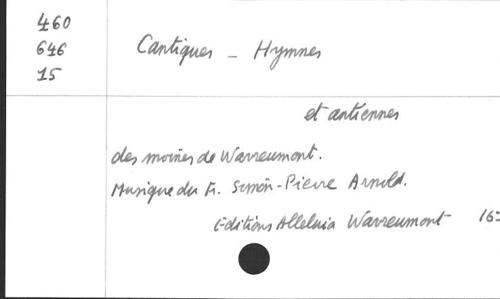 460
646
15
Cantiques - Hymnes
et antiennes
des moines de Wavreumont.
Musique du Fr. Simon-Pierre Arnold.
Editions Alleluia Wavreumont 16